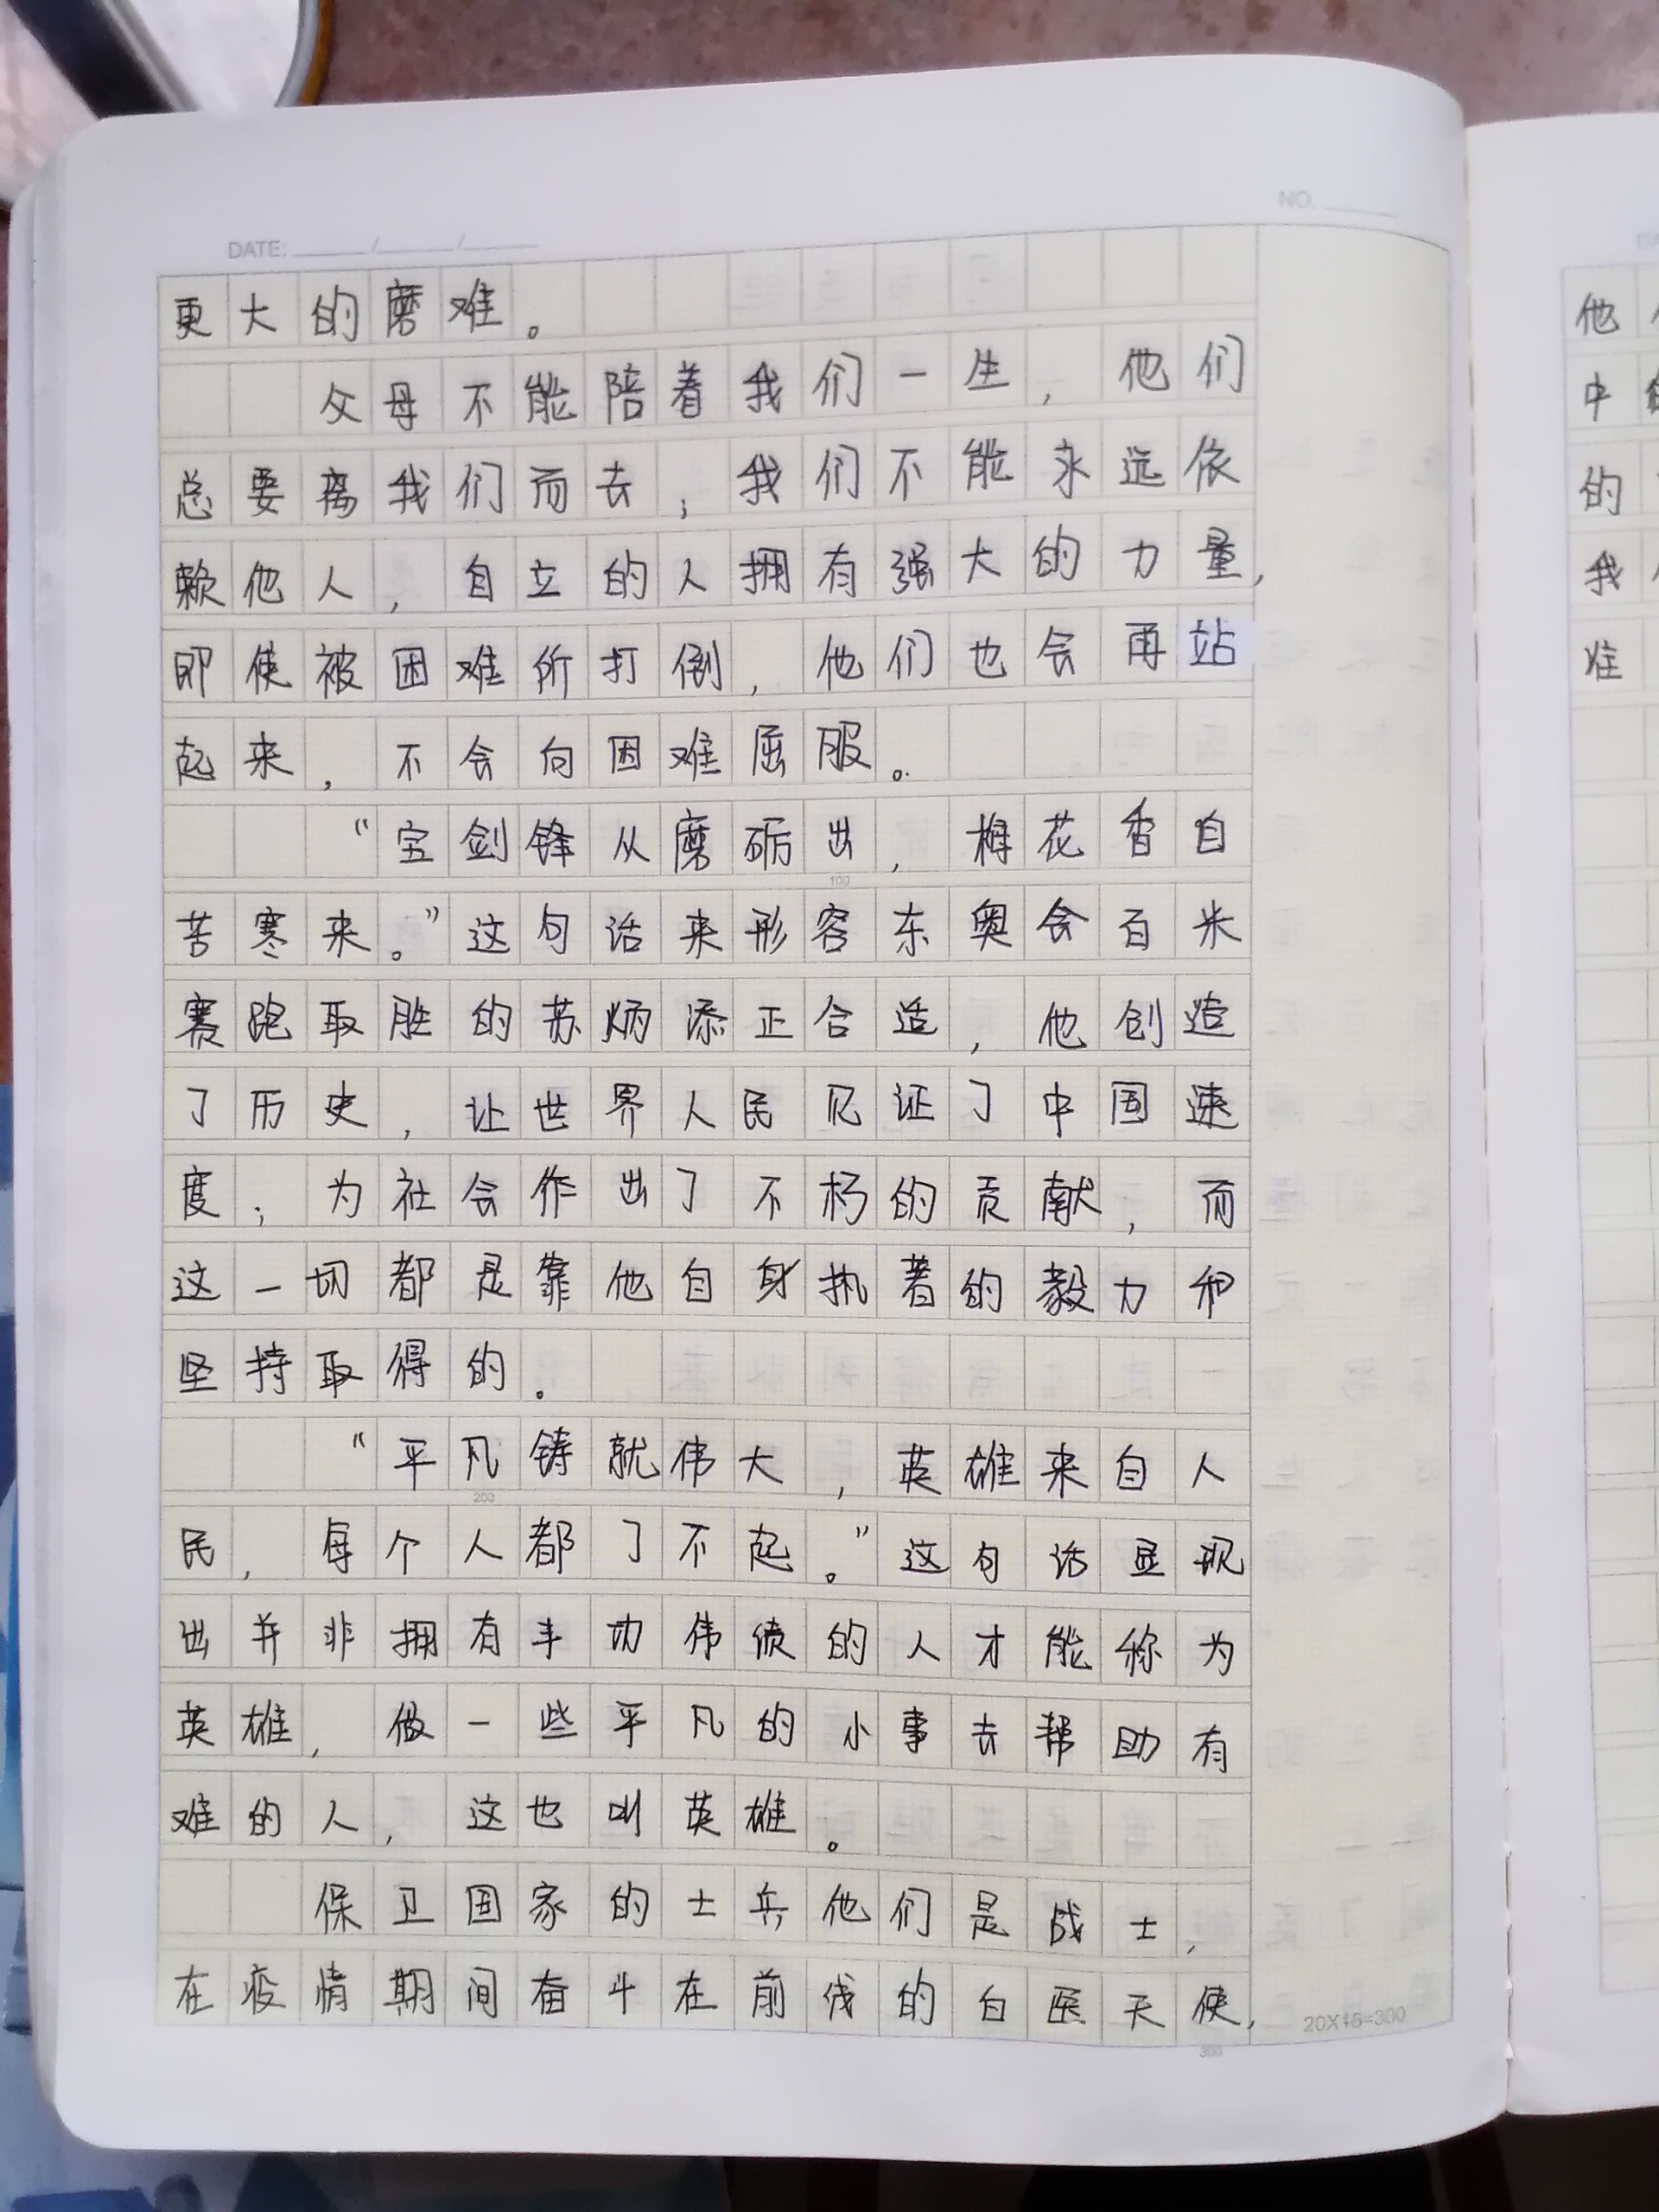 NO.
DATE: / /
更大的磨难。
父母不能陪着我们一生，他们
总要离我们而去，我们不能永远依
赖他人，自立的人拥有强大的力量，
即使被困难所打倒，他们也会再站
起来，不会向困难屈服。
“宝剑锋从磨砺出，梅花香自
100
苦寒来。”这句话来形容东奥会百米
赛跑取胜的苏炳添正合适，他创造
了历史，让世界人民见证了中国速
度，为社会作出了不朽的贡献，而
这一切都是靠他自身执著的毅力和
坚持取得的。
“平凡铸就伟大，英雄来自人
200
民，每个人都了不起。”这句话显现
出并非拥有丰功伟绩的人才能称为
英雄，做一些平凡的小事去帮助有
难的人，这也叫英雄。
保卫国家的士兵他们是战士，
在疫情期间奋斗在前线的白医天使，
20X15=300
300
他
中
的
我
难